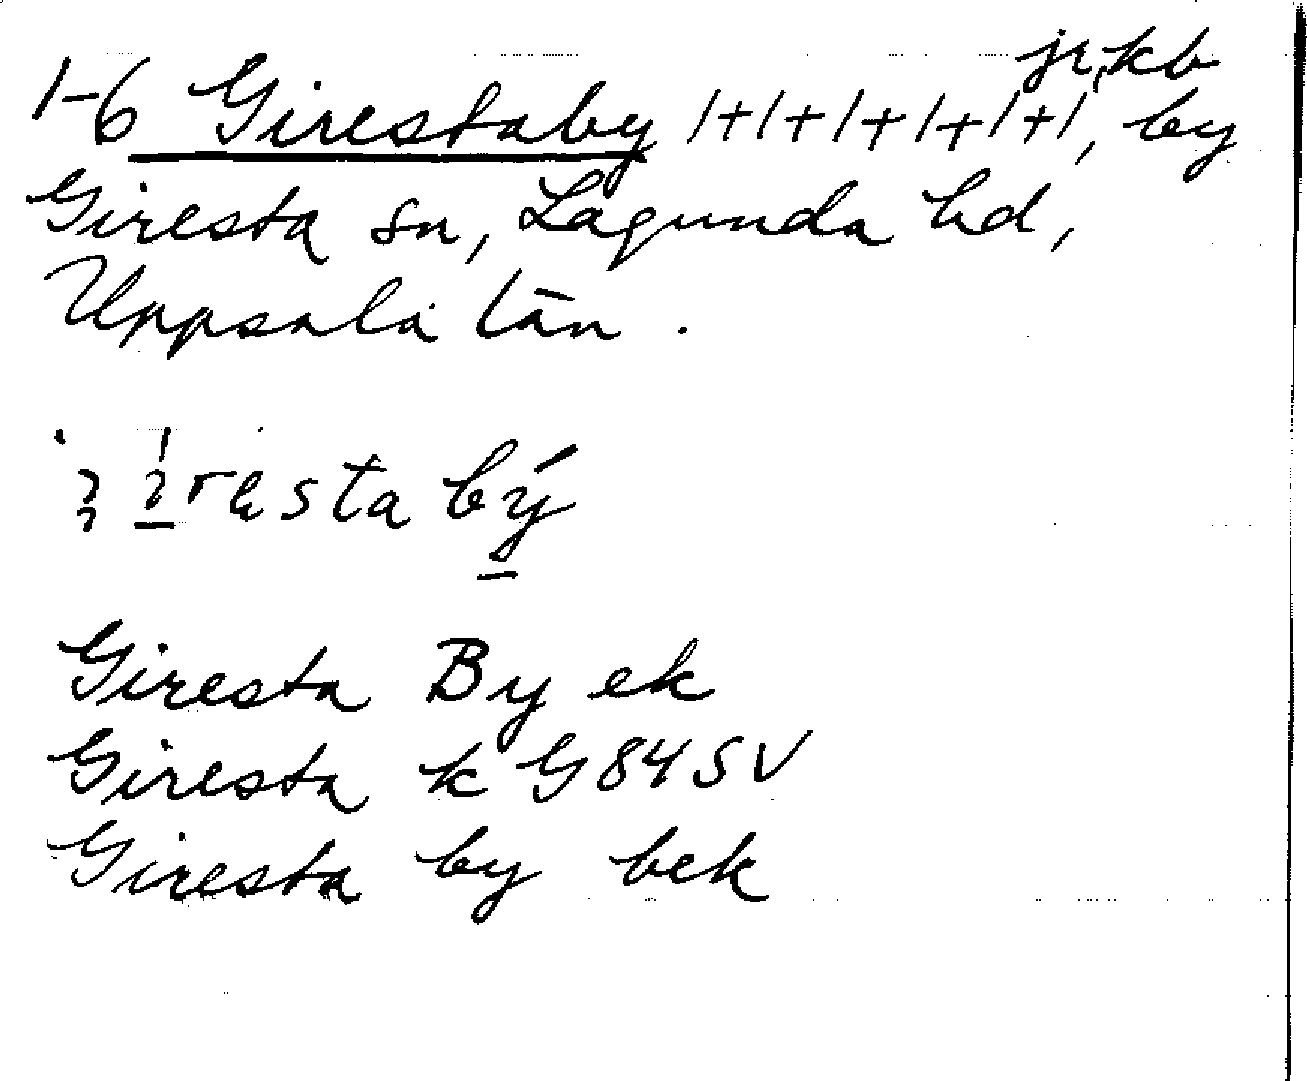 jr, kb
1-6 Girestaby 1+1+1+1+1+1, by
Giresta sn, Lagunda hd,
Uppsala län.
resta by
Giresta By ek
Giresta k G 84 SV
Giresta by bek